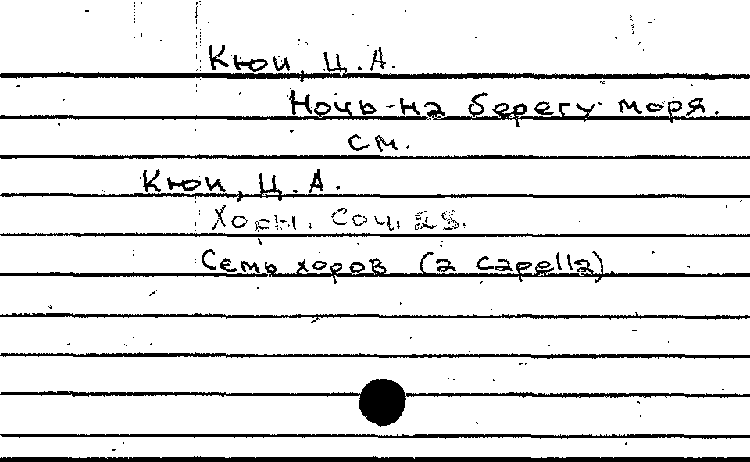 Кюи, Ц.А.
Ночь на берегу моря.
см.
Кюи, Ц.А.
Хоры. Соч. 28.
Семь хоров (a capella).